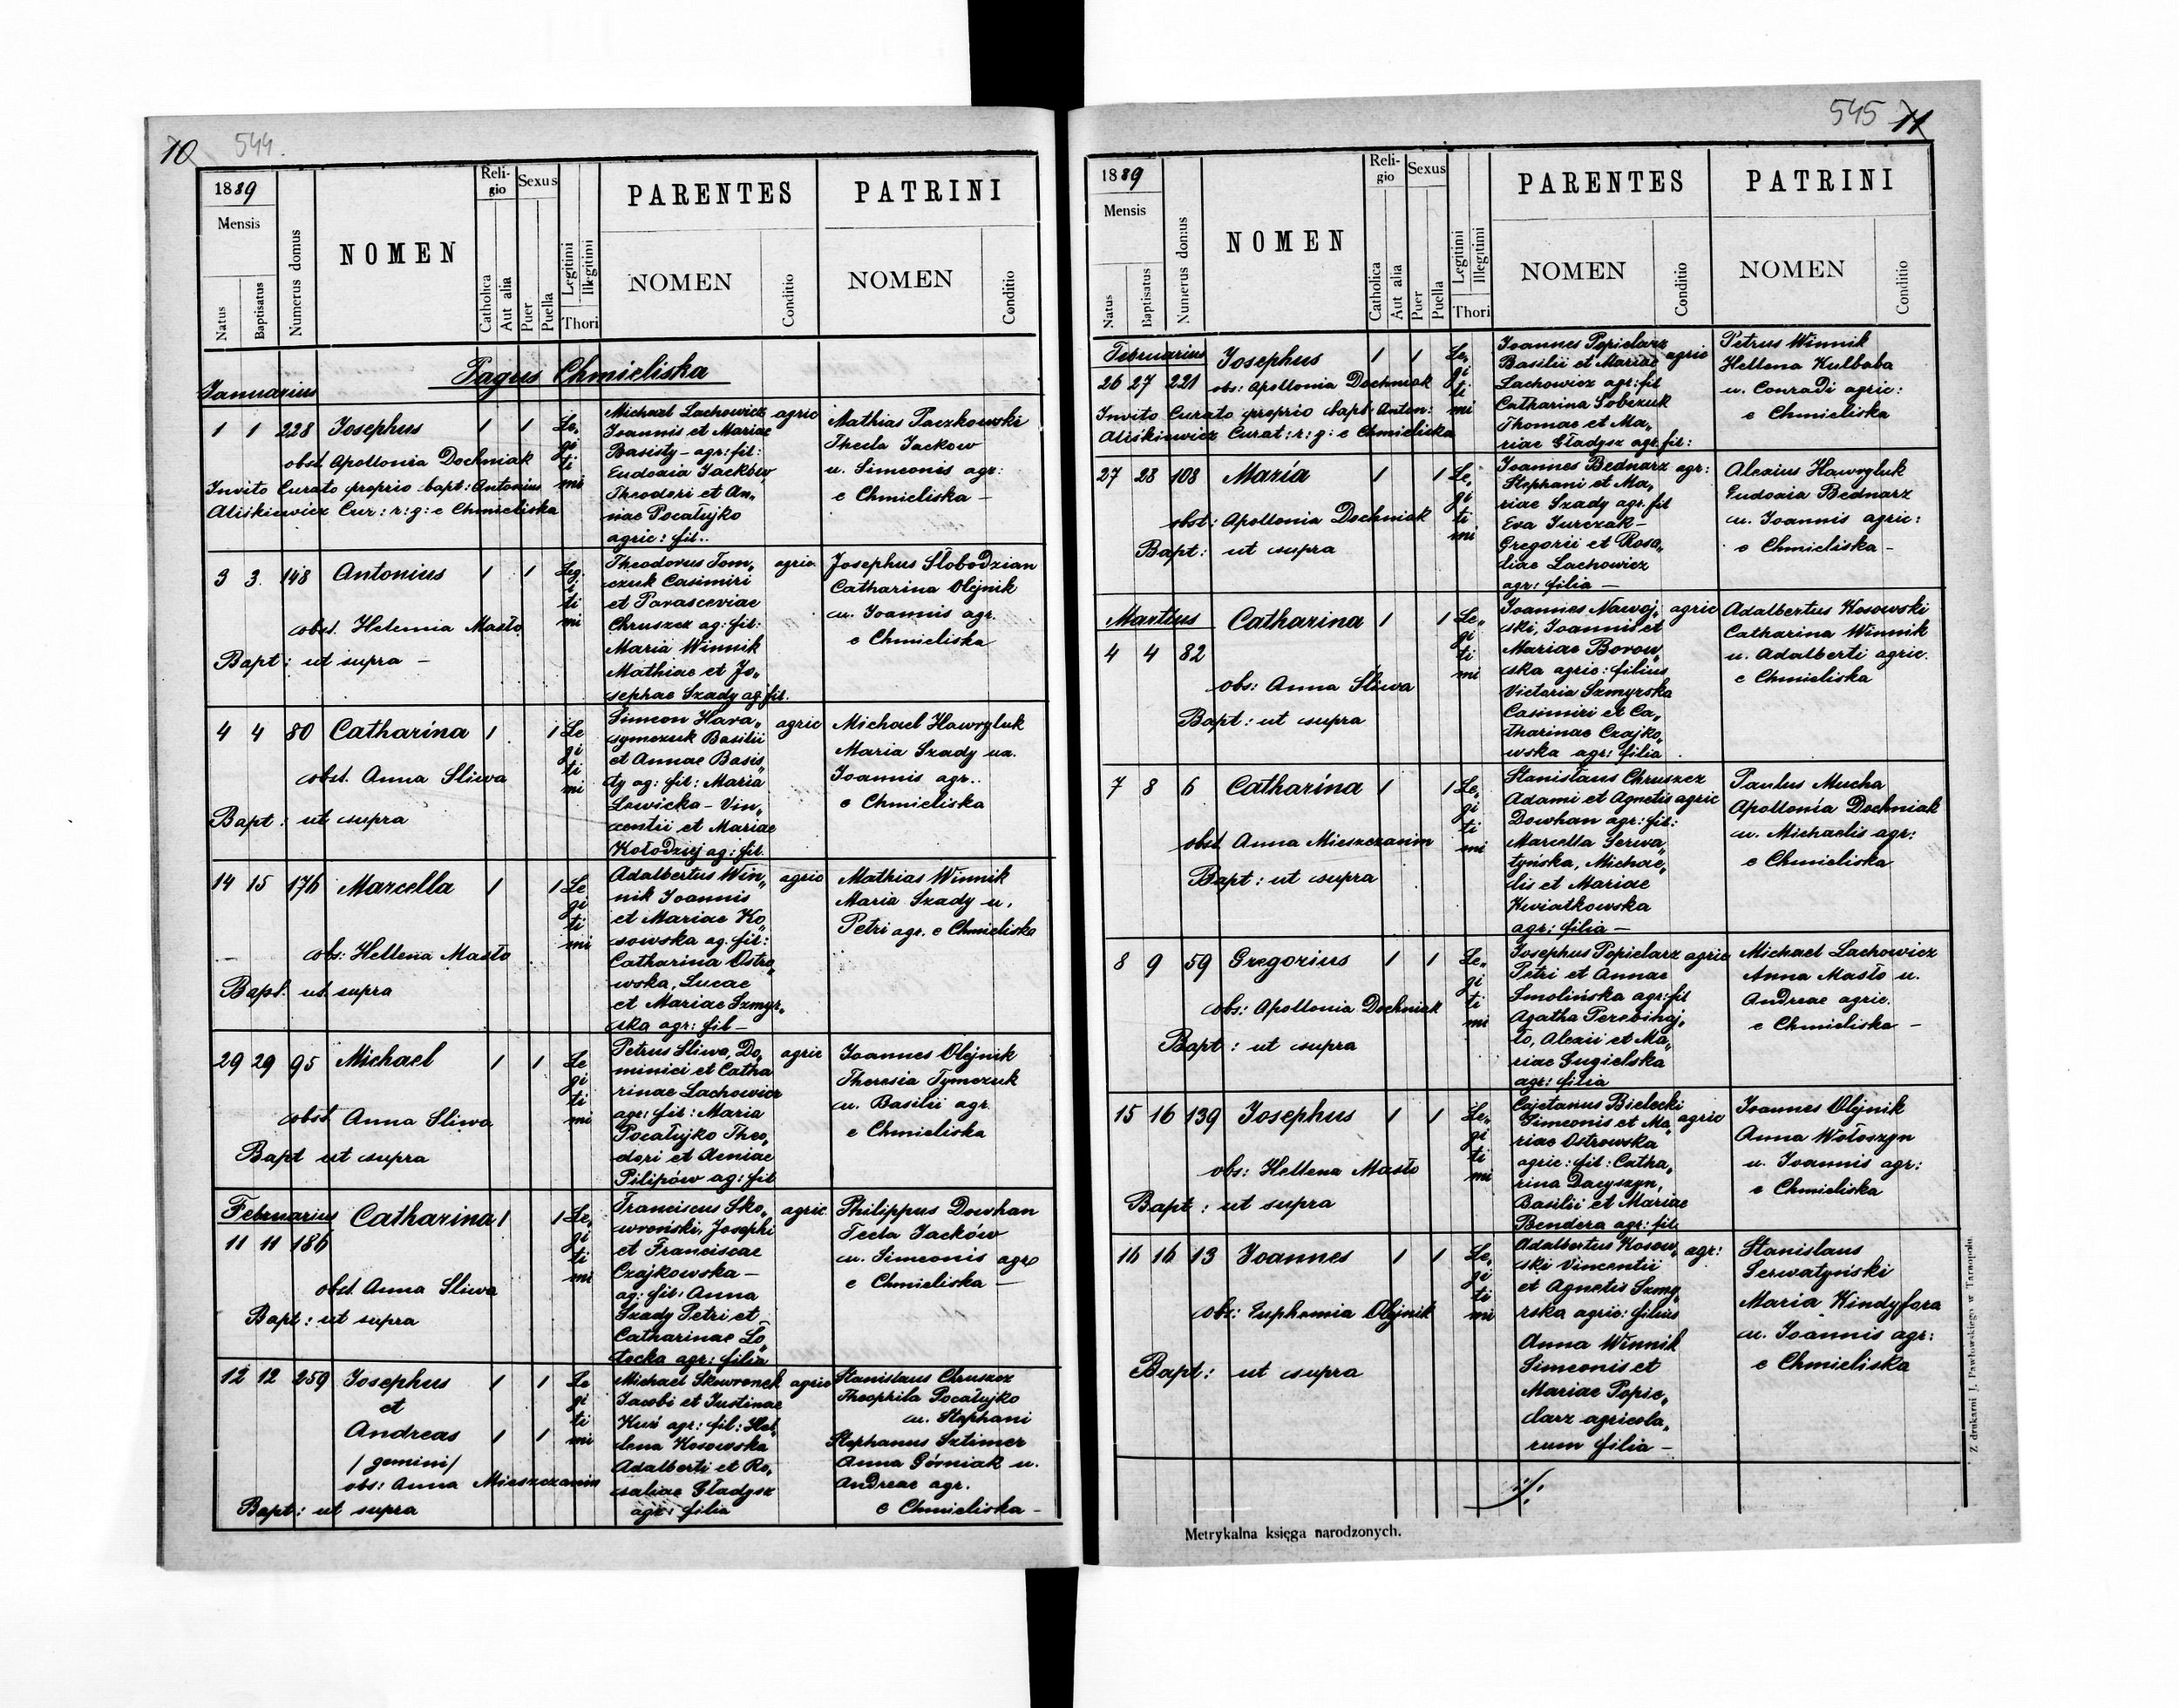 10 544.
1889
Mensis
Natus
Baptisatus
Numerus domus
NOMEN
Religio
Catholica
Aut alia
Sexus
Puer
Puella
Legitimi
Illegitimi
Thori
PARENTES
NOMEN
Conditio
PATRINI
NOMEN
Conditio
Pagus Chmieliska
Januarius
1 1 228 Josephus 1 1 Le,
gi
ti
mi
obst. Apollonia Dochniak
Invito Curato proprio bapt: Antonius
Aliśkiewicz Cur: r: g: e Chmieliska
Michael Lachowicz agric
Joannis et Mariae
Basisty - agr: fil:
Eudoxia Jacków,
Theodori et An„
nae Pocałujko
agric: fil..
Mathias Paczkowski
Thecla Jackow
u. Simeonis agr:
e Chmieliska -
3 3. 148 Antonius 1 1 Leg
i
ti
mi
obst. Helemia Masło
Bapt: ut supra -
Theodorus Tom„ agric.
czuk Casimiri
et Parasceviae
Chruszcz ag: fil:
Maria Winnik
Mathiae et Jo„
sephae Szady ag. fil.
Josephus Slobodzian
Catharina Olejnik
u. Joannis agr.
e Chmieliska
4 4 80 Catharina 1 1 Le
gi
ti
mi
obst. Anna Sliwa
Bapt: ut supra
Simeon Hara„ agric
symczuk Basilii
et Annae Basis„
ty ag: fil: Maria
Lewicka - Vin„
centii et Mariae
Kołodziej ag: fil.
Michael Hawryluk
Maria Szady ux.
Joannis agr..
e Chmieliska
14 15 176 Marcella 1 1 Le
gi
ti
mi
obs: Hellena Masło
Bapt. ut supra
Adalbertus Win„ agric
nik Joannis
et Mariae Ko„
sowska ag. fil:
Catharina Ostro„
wska, Lucae
et Mariae Szmyr„
ska agr: fil -
Mathias Winnik
Maria Szady u.
Petri agr. e Chmieliska
29 29 95 Michael 1 1 Le
gi
ti
mi
obst. Anna Sliwa
Bapt ut supra
Petrus Sliwa, Do„ agric
minici et Catha
rinae Lachowicz
agr: fil: Maria
Pocałujko Theo„
dori et Aeniae
Pilipów ag: fil
Joannes Olejnik
Theresia Tymczuk
u. Basilii agr.
e Chmieliska
Februarius Catharina 1 1 Le,
gi
ti
mi
11 11 186
obst. Anna Sliwa
Bapt: ut supra
Franciscus Sko„ agric
wroński, Josephi
et Franciscae
Czajkowska -
ag: fil: Anna
Szady Petri et
Catharinae Lo„
tocka agr: filia
Philippus Dowhan
Tecla Jacków
u. Simeonis agr
e Chmieliska -
12 12 259 Josephus 1 1 Le
gi
ti
mi
et
Andreas 1 1
/gemini/
obs: Anna Mieszczanin
Bapt: ut supra
Michael Skowronek agric
Jacobi et Justinae
Kuś agr: fil: Hel„
lena Kosowska
Adalberti et Ro„
saliae Gładysz
agr: filia
Stanislaus Chruszcz
Theophila Pocałujko
u. Stephani
Stephanus Sztimer
Anna Górniak u.
Andreae agr.
e Chmieliska -
545 11
1889
Mensis
Natus
Baptisatus
Numerus domus
NOMEN
Religio
Catholica
Aut alia
Sexus
Puer
Puella
Legitimi
Illegitimi
Thori
PARENTES
NOMEN
Conditio
PATRINI
NOMEN
Conditio
Februarius Josephus 1 1 Le,
gi
ti
mi
26 27 221 obs: Apollonia Dochniak
Invito Curato proprio bapt: Anton:
Aliśkiewicz Curat: r: g: e Chmieliska
Joannes Popielarz
Basilii et Mariae agric
Lachowicz agr: fil
Catharina Sobczuk
Thomae et Ma„
riae Gładysz agr. fil:
Petrus Winnik
Hellena Kulbaba
u. Conradi agric:
e Chmieliska
27 28 108 Maria 1 1 Le,
gi
ti
mi
obst: Apollonia Dochniak
Bapt: ut supra
Joannes Bednarz agr:
Stephani et Ma„
riae Szady agr. fil
Eva Jurczak -
Gregorii et Rosa„
liae Lachowicz
agr: filia -
Alexius Hawryluk
Eudoxia Bednarz
u. Joannis agric:
e Chmieliska -
Martius Catharina 1 1 Le„
gi
ti
mi
4 4 82
obs: Anna Śliwa
Bapt: ut supra
Joannes Nawoj„ agric
ski, Joannis et
Mariae Borow„
ska agric: filius
Victoria Szmyrska
Casimiri et Ca„
tharinae Czajko„
wska agr: filia
Adalbertus Kosowski
Catharina Winnik
u. Adalberti agric.
e Chmieliska
7 8 6 Catharina 1 1 Le„
gi
ti
mi
obst Anna Mieszczanin
Bapt: ut supra
Stanisłaus Chruszcz
Adami et Agnetis agric
Dowhan agr: fil:
Marcella Serwa„
tyńska, Michae„
lis et Mariae
Kwiatkowska
agr: filia -
Paulus Mucha
Apollonia Dochniak
u. Michaelis agr:
e Chmieliska
8 9 59 Gregorius 1 1 Le„
gi
ti
mi
obs: Apollonia Dochniak
Bapt: ut supra
Josephus Popielarz agric
Petri et Annae
Smolińska agr: fil
Agatha Perebinoj„
ło, Alexii et Ma„
riae Gugielska
agr: filia
Michael Lachowicz
Anna Masło u.
Andreae agric.
e Chmieliska -
15 16 139 Josephus 1 1 Le„
gi
ti
mi
obs: Hellena Masło
Bapt: ut supra
Cajetanus Bielecki
Simeonis et Ma„ agric
riae Ostrowska
agric: fil: Catha„
rina Dacyszyn,
Basilii et Mariae
Bendera agr: fil.
Joannes Olejnik
Anna Wołoszyn
u. Joannis agr:
e Chmieliska
16 16 13 Joannes 1 1 Le,
gi
ti
mi
obs: Euphemia Olejnik
Bapt: ut supra
Adalbertus Kosow„ agr:
ski Vincentii
et Agnetis Szmy„
rska agric: filius
Anna Winnik
Simeonis et
Mariae Popie„
larz agricola„
rum filia -
Stanislaus
Serwatyński
Maria Kindyfora
u. Joannis agr:
e Chmieliska
Metrykalna księga narodzonych.
Z drukarni J. Pawłowskiego w Tarnopolu.